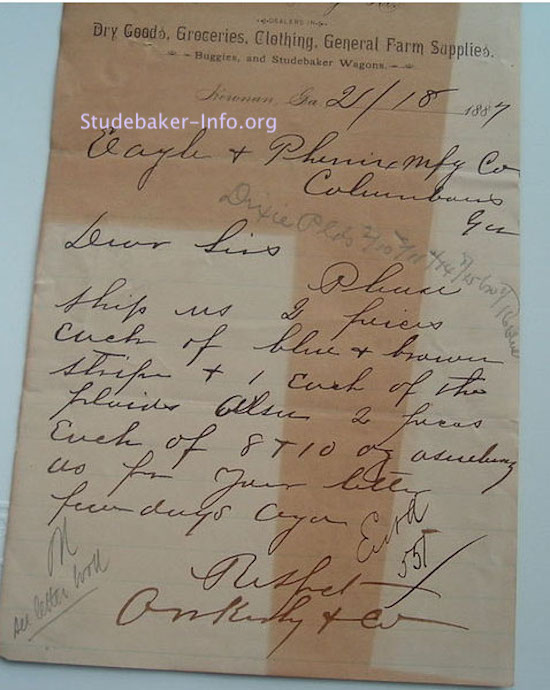 DEALERS IN
Dry Goods, Groceries, Clothing, General Farm Supplies.
Buggies, and Studebaker Wagons.
Newnan, Ga. 2/18 1887
Studebaker-Info.org
Eagle & Phenix Mfg Co
Columbus
Ga
Dixie Plds
Dear Sirs
Please
ship us 2 pieces
each of blue & brown
stripe & 1 each of the
plaids Also 2 pieces
each of 8 & 10 oz
as per your letter
few days ago
Entd
551
Respet
& Co
M
see letter